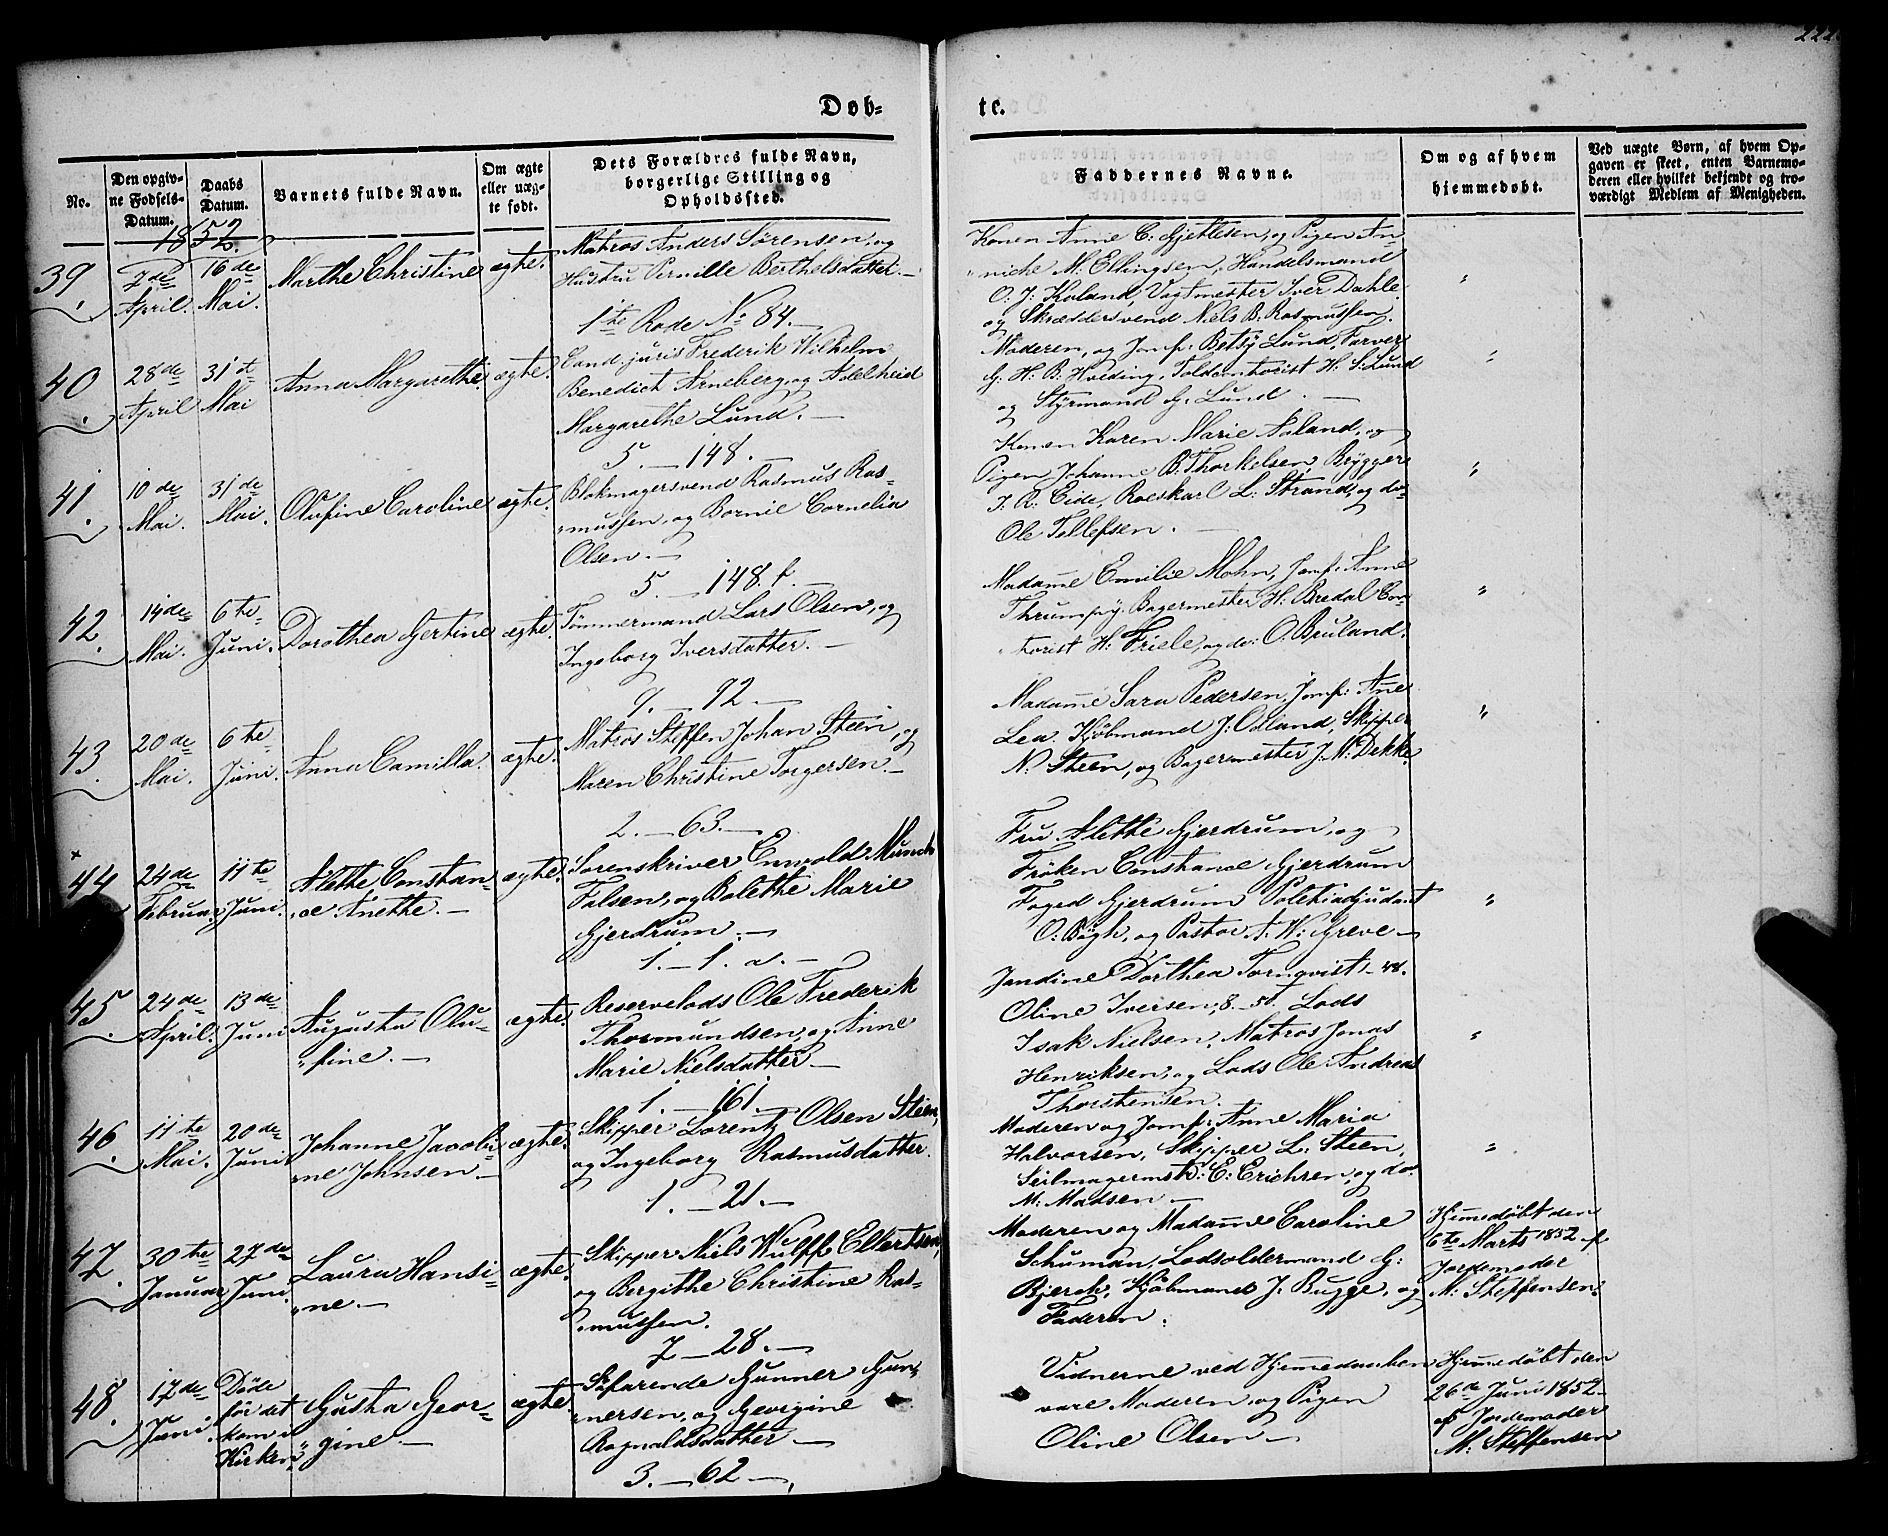 222
Døb-
te.
No.
Den opgiv-
ne Fødsels-
Datum.
Daabs
Datum.
Barnets fulde Navn.
Om ægte
eller uæg-
te født.
Dets Forældres fulde Navn,
borgerlige Stilling og
Opholdssted.
Faddernes Navne.
Om og af hvem
hjemmedøbt.
Ved uægte Børn, af hvem Op-
gaven er skeet, enten Barnemo-
deren eller hvilket bekjendt og tro-
værdigt Medlem af Menigheden.
1852.
39.
7de
April.
16de
Mai.
Marthe Christine
ægte.
Matros Anders Sørensen, og
Hustru Pernille Berthelsdatter. —
1te Rode No 84. —
Konen Anne C. Gjetlesen, og Pigen An-
niche M. Ellingsen, Handelsmand
O. J. Koland, Vagtmester Iver Dahle
og Skræddersvend Niels B. Rasmussen.
"
40.
28de
April
31te
Mai
Anna Margarethe
ægte.
Cand. juris Frederik Wilhelm
Benedict Arneberg, og Adelheid
Margarethe Lund. —
5. — 148. —
Moderen, og Jomf: Betsy Lund, Farver
G. H. B. Hveding, Toldcontorist H. S. Lund
og Styrmand G. Lund. —
"
41.
10de
Mai.
31de
Mai.
Olufine Caroline
ægte.
Blokmagersvend Rasmus Ras-
mussen, og Bornie Cornelia
Olsen. —
5. — 148. f. —
Konen Karen Marie Aaland, og
Pigen Johanne B. Thorkelsen, Brygger
J. R. Eide, Roeskarl L. Strand, og do
Ole Tellefsen. —
"
42.
14de
Mai.
6te
Juni.
Dorothea Gjertine
ægte.
Tømmermand Lars Olsen, og
Ingeborg Iversdatter. —
9. — 92. —
Madame Emilie Mohn, Jomf: Anne
Thrumpy. Bagermester H. Bredal Con-
torist H: Friele, og do: O. Bruland.
"
43.
20de
Mai.
6te
Juni.
Anna Camilla.
ægte.
Matros Steffen Johan Steen, og
Maren Christine Torgersen. —
2. — 63. —
Madame Sara Pedersen, Jomf: Ane
Lea. Kjøbmand J: Odland, Skipper
N. Steen, og Bagermester J. M. Dekke,
"
×
44
24de
Februar
11te
Juni.
Alette Constan-
ce Anette. —
ægte.
Sorenskriver Enwold Munch
Falsen, og Bolette Marie
Gjerdrum. —
1. — 1. a. —
Fru Alette Gjerdrum, og
Frøken Constance Gjerdrum
Foged Gjerdrum Politiadjudant
O: Bøgh, og Pastor A. W. Greve —
"
45.
24de
April.
13de
Juni
Augusta Olu-
fine. —
ægte.
Reservelods Ole Frederik
Thormundsen, og Anne
Marie Nielsdatter —
1. — 161 —
Jandine Dorthea Tornqvist, — 44.
Oline Iversen, 8. — 51. Lods
Isak Nielsen, Matros Jonas
Henriksen, og Lods Ole Andreas
Thorstensen.
"
46.
11te
Mai.
20de
Juni
Johanne Jacobi-
ne Johnsen —
ægte.
Skipper Lorentz Olsen Steen,
og Ingeborg Rasmusdatter.
1. — 21. —
Moderen og Jomf: Anne Maria
Halvorsen, Skipper L. Steen,
Seilmagermstr: E: Erichsen, og do.
M: Madsen —
"
47.
30te
Januar
27de
Juni
Laura Hansi-
ne. —
ægte.
Skipper Niels Wulff Ellertsen,
og Bergithe Christine Ras-
mussen.
7 — 28. —
Moderen og Madame Caroline
Schuman, Lodsoldermand G:
Bjerck, Kjøbmand J. Bugge, og
Faderen.
Hjemmedøbt den
6te Marts 1852. af
Jordemoder
M. Steffensen.
48.
17de
Juni
Døde
før det
kom i
Kirken.
Gusta Geor-
gine. —
ægte
Søfarende Gunner Gun-
nersen, og Georgine
Rognaldsdatter —
3. — 62 —
Vidnerne ved Hjemmedaaben
vare Moderen og Pigen
Oline Olsen —
Hjemmedøbt den
26de Juni 1852.
af Jordemoder
M. Steffensen